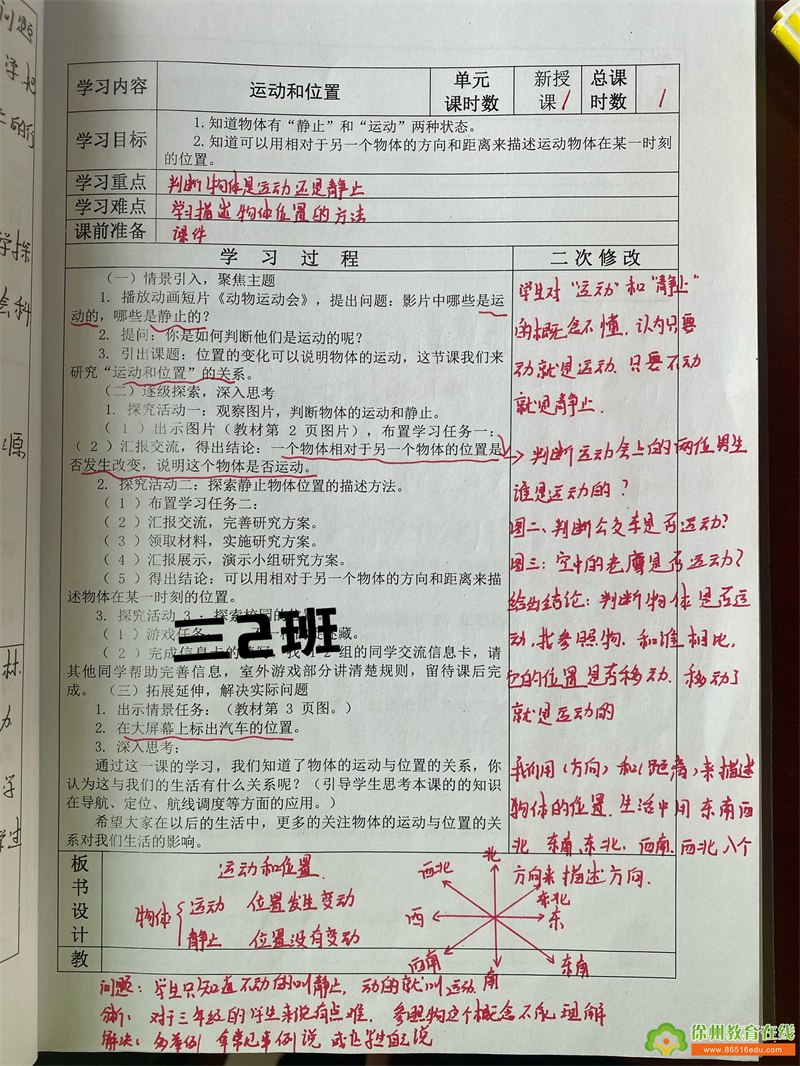 学习内容 运动和位置 单元课时数 新授课 1 总课时数 1
学习目标
1.知道物体有“静止”和“运动”两种状态。
2.知道可以用相对于另一个物体的方向和距离来描述运动物体在某一时刻
的位置。
学习重点 判断物体是运动还是静止
学习难点 学习描述物体位置的方法
课前准备 课件
学 习 过 程
（一）情景引入，聚焦主题
1. 播放动画短片《动物运动会》，提出问题：影片中哪些是运
动的，哪些是静止的？
2. 提问：你是如何判断他们是运动的呢？
3. 引出课题：位置的变化可以说明物体的运动，这节课我们来
研究“运动和位置”的关系。
（二）逐级探索，深入思考
1. 探究活动一：观察图片，判断物体的运动和静止。
（1）出示图片（教材第 2 页图片），布置学习任务一：
（2）汇报交流，得出结论：一个物体相对于另一个物体的位置是
否发生改变，说明这个物体是否运动。
2. 探究活动二：探索静止物体位置的描述方法。
（1）布置学习任务二：
（2）汇报交流，完善研究方案。
（3）领取材料，实施研究方案。
（4）汇报展示，演示小组研究方案。
（5）得出结论：可以用相对于另一个物体的方向和距离来描
述物体在某一时刻的位置。
3. 探究活动 3：探索校园的
（1）游戏任务 藏。
（2）完成信息卡的 找 1-2 组的同学交流信息卡，请
其他同学帮助完善信息，室外游戏部分讲清楚规则，留待课后完
成。 （三）拓展延伸，解决实际问题
1. 出示情景任务：（教材第 3 页图。）
2. 在大屏幕上标出汽车的位置。
3. 深入思考：
通过这一课的学习，我们知道了物体的运动与位置的关系，你
认为这与我们的生活有什么关系呢？（引导学生思考本课的的知识
在导航、定位、航线调度等方面的应用。）
希望大家在以后的生活中，更多的关注物体的运动与位置的关
系对我们生活的影响。
三2班
二次修改
学生对“运动”和“静止”
的概念不懂，认为只要
动就是运动，只要不动
就是静止.
判断运动会上的两位男生
谁是运动的？
图二、判断公交车是否运动？
图三：空中的老鹰是否运动？
给出结论：判断物体是否运
动，找参照物，和谁相比，
它的位置是否移动，移动了
就是运动的
我们用（方向）和（距离）来描述
物体的位置，生活中用东南西
北，东南、东北，西南、西北八个
方向来描述方向.
板书设计
运动和位置
物体 运动 位置发生变动
静止 位置没有变动
北
西北
东北
西
东
西南
南
东南
教
问题：学生只知道不动的叫静止，动的就叫运动
分析：对于三年级的学生来说有点难，参照物这个概念不能理解
解决：多举例
徐州教育在线
www.86516edu.com